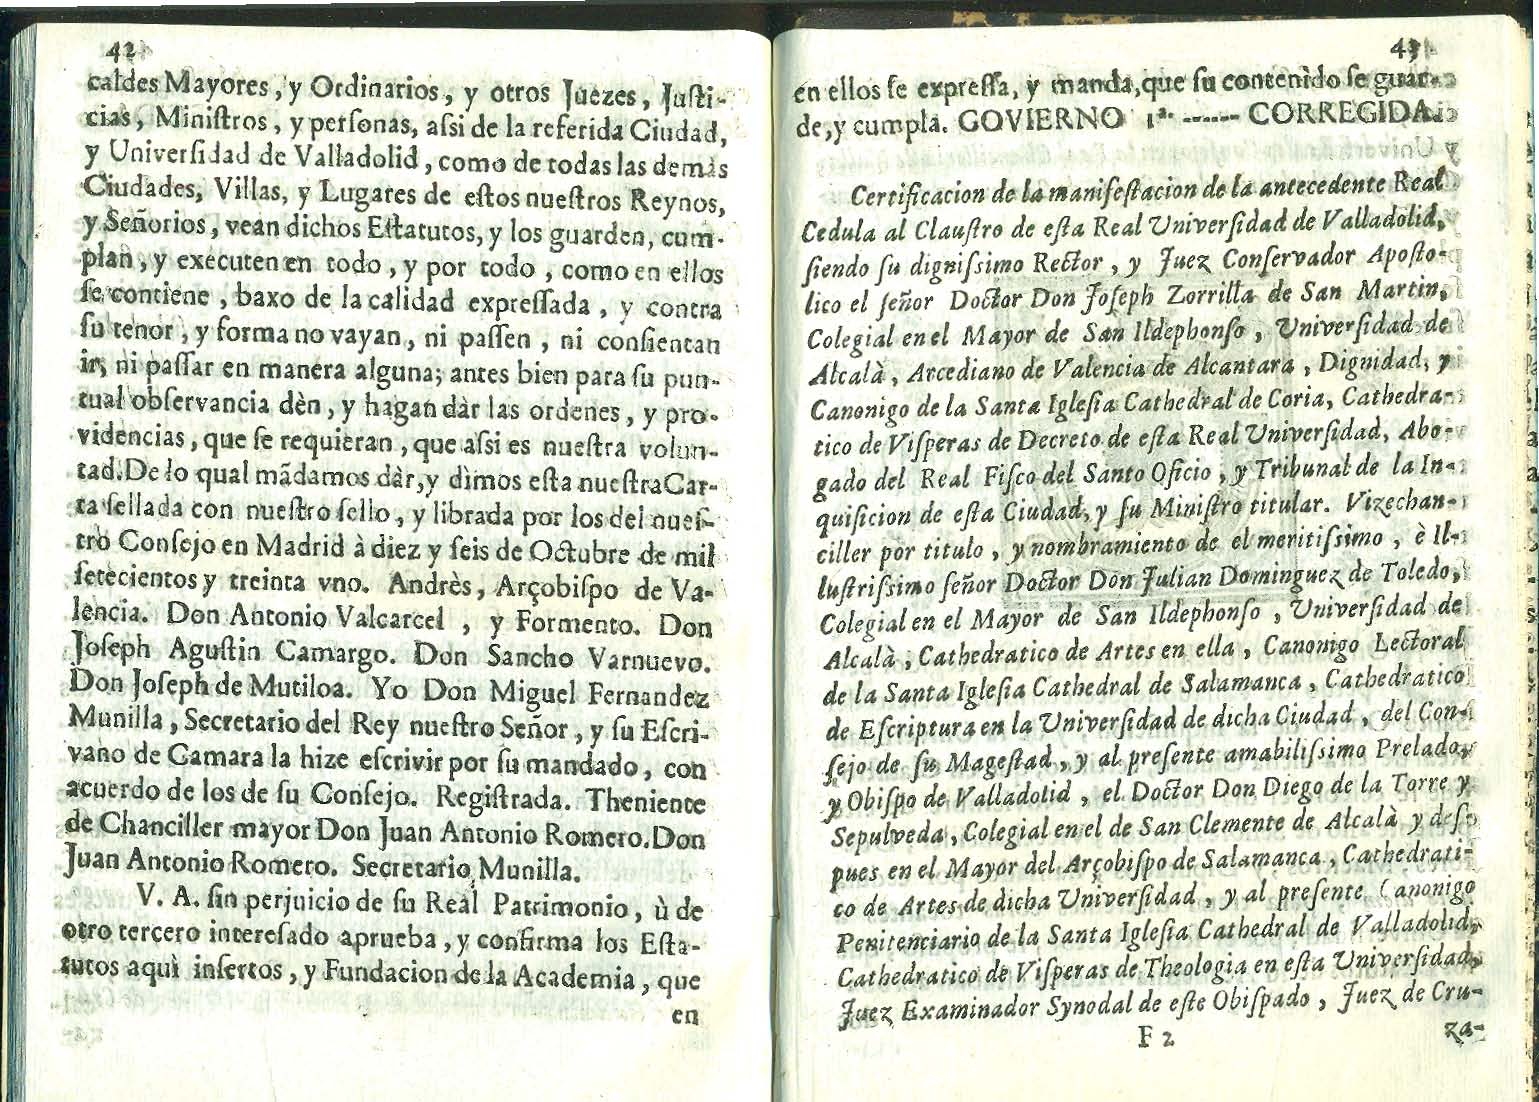 42
caldes Mayores, y Ordinarios, y otros Juezes, Justi-
cias, Ministros, y personas, assi de la referida Ciudad,
y Universidad de Valladolid, como de todas las demàs
Ciudades, Villas, y Lugares de estos nuestros Reynos,
y Señorios, vean dichos Estatutos, y los guarden, cum-
plan, y executen en todo, y por todo, como en ellos
se contiene, baxo de la calidad expressada, y contra
su tenor, y forma no vayan, ni passen, ni consientan
ir, ni passar en manera alguna; antes bien para su pun-
tual observancia dèn, y hagan dàr las ordenes, y pro-
videncias, que se requieran, que assi es nuestra volun-
tad. De lo qual mãdamos dàr, y dimos esta nuestra Car-
ta sellada con nuestro sello, y librada por los del nues-
tro Consejo en Madrid à diez y seis de Octubre de mil
setecientos y treinta vno. Andrès, Arçobispo de Va-
lencia. Don Antonio Valcarcel, y Formento. Don
Joseph Agustin Camargo. Don Sancho Varnuevo.
Don Joseph de Mutiloa. Yo Don Miguel Fernandez
Munilla, Secretario del Rey nuestro Señor, y su Escri-
vano de Camara la hize escrivir por su mandado, con
acuerdo de los de su Consejo. Registrada. Theniente
de Chanciller mayor Don Juan Antonio Romero. Don
Juan Antonio Romero. Secretario Munilla.
V. A. sin perjuicio de su Reàl Patrimonio, ù de
otro tercero interesado aprueba, y confirma los Esta-
tutos aquì insertos, y Fundacion de la Academia, que
en
43
en ellos se expressa, y manda, que su contenido se guar-
de, y cumpla. GOVIERNO 1ª. ------ CORREGIDA.
Certificacion de la manifestacion de la antecedente Real
Cedula al Claustro de esta Real Universidad de Valladolid,
siendo su dignissimo Rector, y Juez Conservador Aposto-
lico el señor Doctor Don Joseph Zorrilla de San Martin,
Colegial en el Mayor de San Ildephonso, Universidad de
Alcalà, Arcediano de Valencia de Alcantara, Dignidad, y
Canonigo de la Santa Iglesia Cathedral de Coria, Cathedra-
tico de Visperas de Decreto de esta Real Universidad, Abo-
gado del Real Fisco del Santo Oficio, y Tribunal de la In-
quisicion de esta Ciudad, y su Ministro titular. Vizechan-
ciller por titulo, y nombramiento de el meritissimo, è Il-
lustrissimo señor Doctor Don Julian Dominguez de Toledo,
Colegial en el Mayor de San Ildephonso, Universidad de
Alcalà, Cathedratico de Artes en ella, Canonigo Lectoral
de la Santa Iglesia Cathedral de Salamanca, Cathedratico
de Escriptura en la Universidad de dicha Ciudad, del Con-
sejo de su Magestad, y al presente amabilissimo Prelado,
y Obispo de Valladolid, el Doctor Don Diego de la Torre y
Sepulveda, Colegial en el de San Clemente de Alcalà y des-
pues en el Mayor del Arçobispo de Salamanca, Cathedrati-
co de Artes de dicha Universidad, y al presente Canonigo
Penitenciario de la Santa Iglesia Cathedral de Valladolid,
Cathedratico de Visperas de Theologia en esta Universidad,
Juez Examinador Synodal de este Obispado, Juez de Cru-
F 2
za-